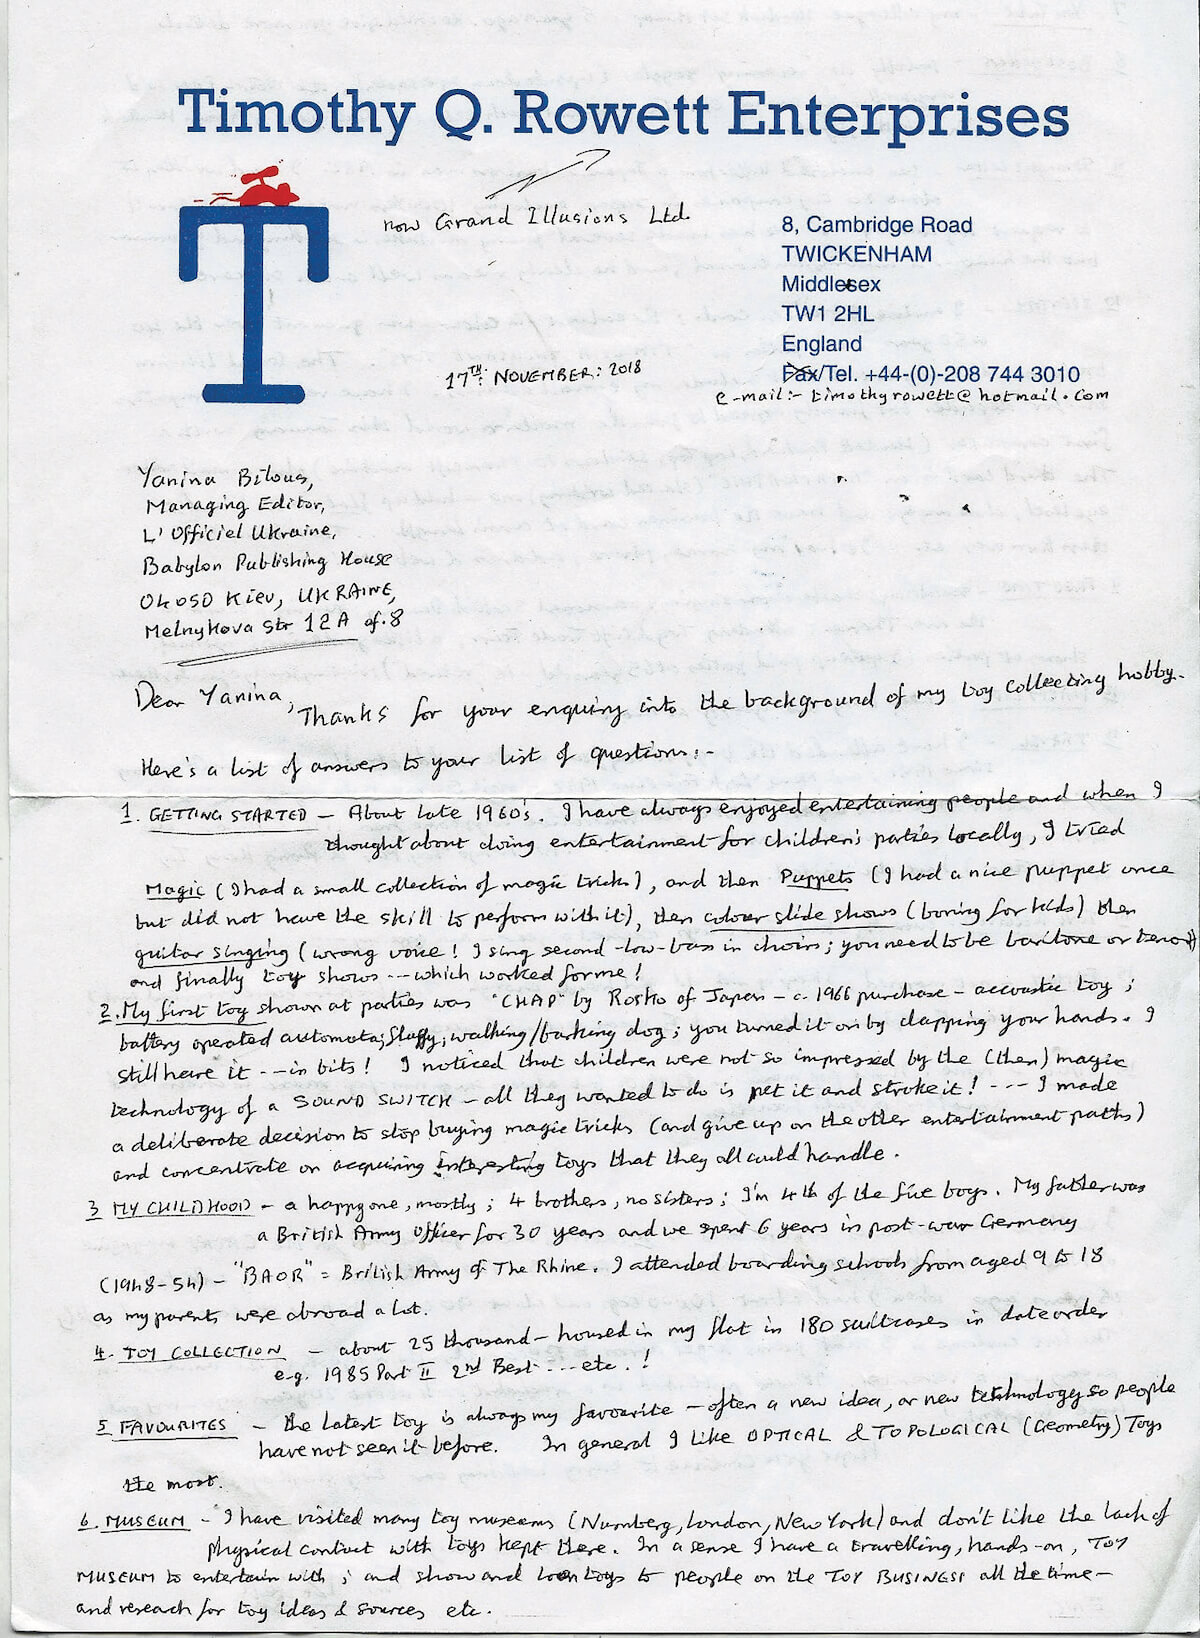 Timothy Q. Rowett Enterprises
now Grand Illusions Ltd.
8, Cambridge Road
TWICKENHAM
Middlesex
TW1 2HL
England
Fax/Tel. +44-(0)-208 744 3010
e-mail:- timothyrowett@hotmail.com
17TH: NOVEMBER: 2018
Yanina Bilous,
Managing Editor,
L'Officiel Ukraine,
Babylon Publishing House
04050 Kiev, UKRAINE,
Melnykova Str 12A of.8
Dear Yanina,
Thanks for your enquiry into the background of my toy collecting hobby.
Here's a list of answers to your list of questions:-
1. GETTING STARTED – About late 1960's. I have always enjoyed entertaining people and when I
thought about doing entertainment for children's parties locally, I tried
Magic (I had a small collection of magic tricks), and then Puppets (I had a nice puppet once
but did not have the skill to perform with it), then colour slide shows (boring for kids) then
guitar singing (wrong voice! I sing second-low-bass in choirs; you need to be baritone or tenor)
and finally toy shows --- which worked for me!
2. My first toy shown at parties was "CHAP" by Rosko of Japan – c. 1966 purchase – accoustic toy;
battery operated automata; fluffy, walking/barking dog; you turned it on by clapping your hands. I
still have it --- in bits! I noticed that children were not so impressed by the (then) magic
technology of a SOUND SWITCH – all they wanted to do is pet it and stroke it! --- I made
a deliberate decision to stop buying magic tricks (and give up on the other entertainment paths)
and concentrate on acquiring interesting toys that they all could handle.
3 MY CHILDHOOD – a happy one, mostly; 4 brothers, no sisters; I'm 4th of the five boys. My father was
a British Army Officer for 30 years and we spent 6 years in post-war Germany
(1948-54) – "BAOR" = British Army of The Rhine. I attended boarding schools from aged 9 to 18
as my parents were abroad a lot.
4. TOY COLLECTION – about 25 thousand – housed in my flat in 180 suitcases in date order
e.g. 1985 Part II 2nd Best --- etc.!
5 FAVOURITES – the latest toy is always my favourite – often a new idea, or new technology so people
have not seen it before. In general I like OPTICAL & TOPOLOGICAL (Geometry) Toys
the most.
6. MUSEUM – I have visited many toy museums (Nurnberg, London, New York) and don't like the lack of
physical contact with toys kept there. In a sense I have a travelling, hands-on, TOY
MUSEUM to entertain with; and show and loan toys to people on the TOY BUSINESS all the time –
and reseach for toy ideas & sources etc.